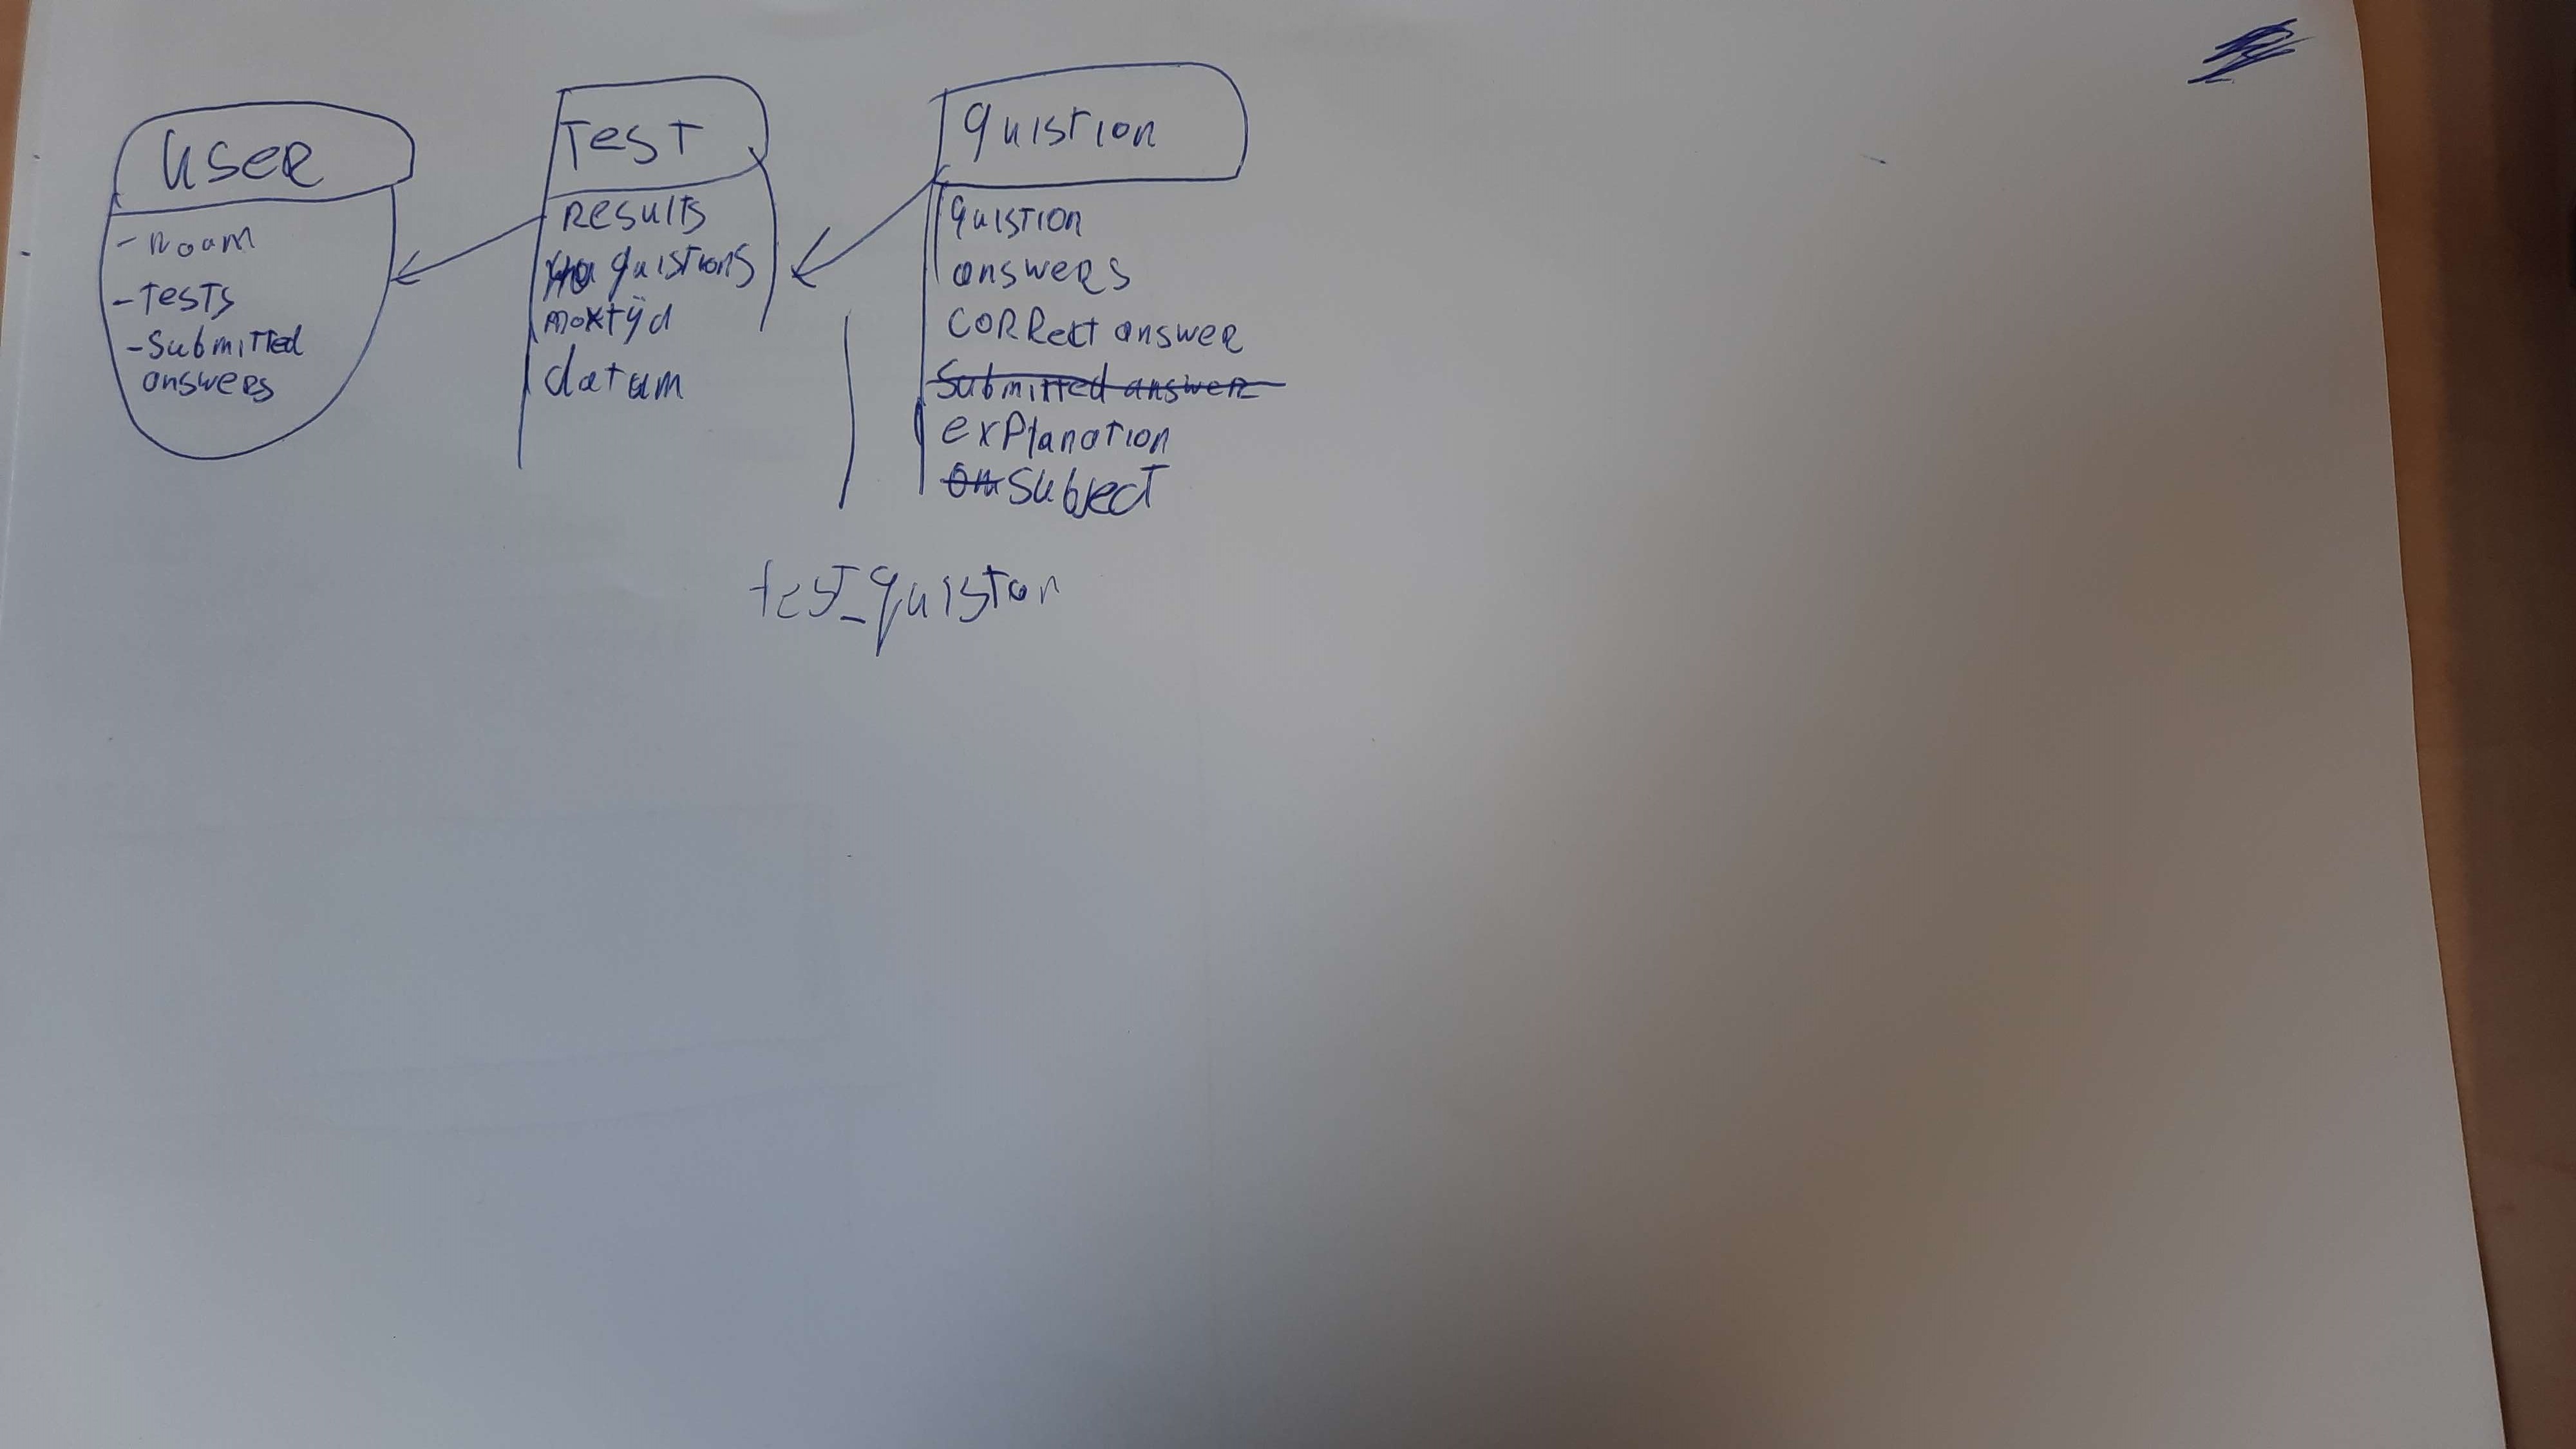 USER
- noam
- Tests
- Submitted
answers
Test
Results
quistions
maxtijd
datum
quistion
quistion
answers
CORRect answer
Submitted answer
exPlanation
Subject
test_quistion